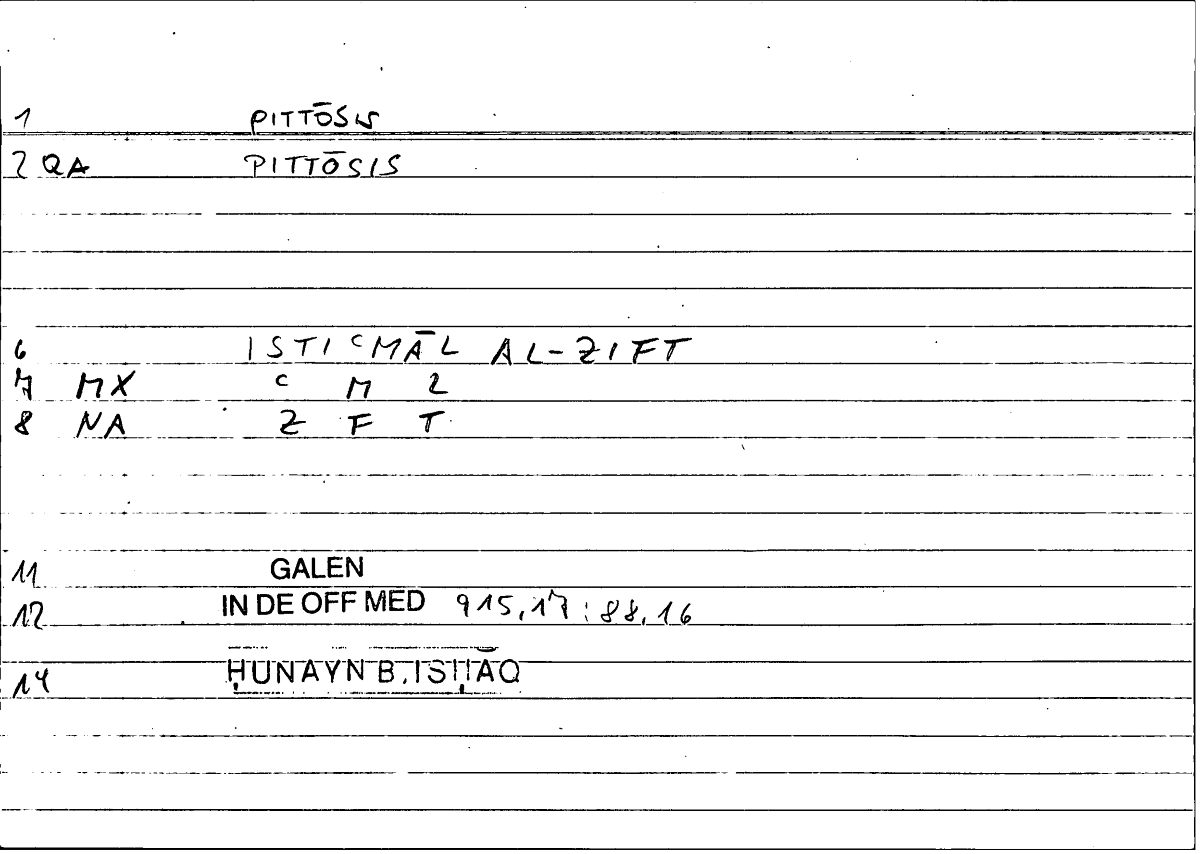 1 PITTŌSIS
2 QA PITTŌSIS
6 ISTIᶜMĀL AL-ZIFT
7 MX ᶜ M L
8 NA Z F T
11 GALEN
12 IN DE OFF MED 915,17 : 88,16
14 ḤUNAYN B. ISḤĀQ